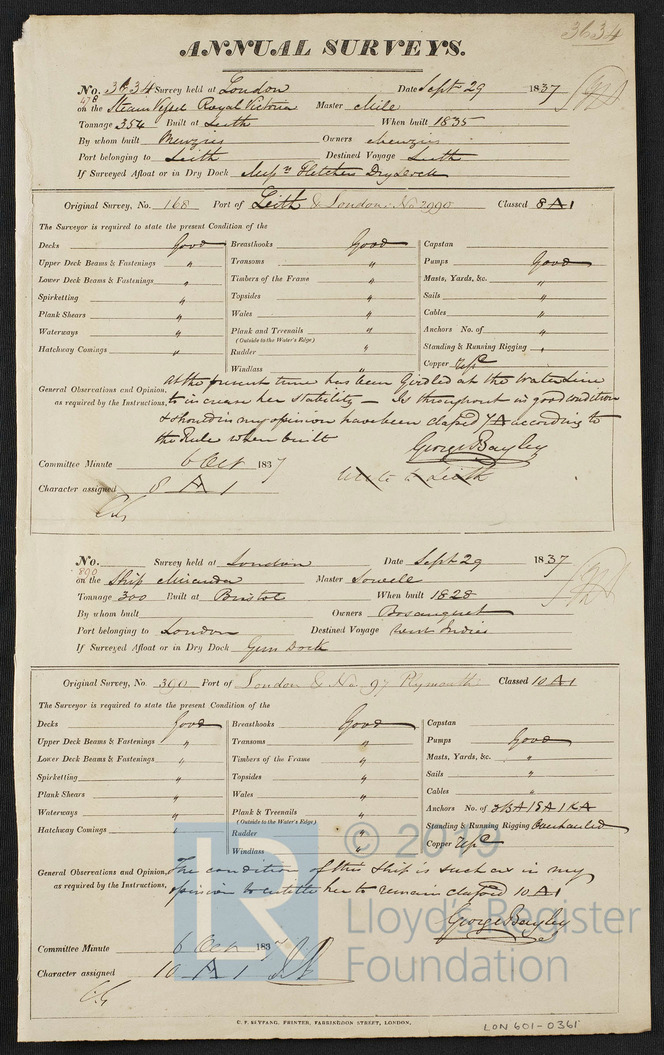 3634
ANNUAL SURVEYS.
No. 3634 Survey held at London Date Sept 29 1837
478 on the Steam Vessel Royal Victoria Master Mile
Tonnage 354 Built at Leith When built 1835
By whom built Menzies Owners Menzies
Port belonging to Leith Destined Voyage Leith
If Surveyed Afloat or in Dry Dock Messrs Fletchers Dry Dock
Original Survey, No. 168 Port of Leith & London No 2990 Classed 8 A 1
The Surveyor is required to state the present Condition of the
Decks Good Breasthooks Good Capstan
Upper Deck Beams & Fastenings " Transoms " Pumps Good
Lower Deck Beams & Fastenings " Timbers of the Frame " Masts, Yards, &c. "
Spirketting " Topsides " Sails "
Plank Shears " Wales " Cables "
Waterways " Plank and Treenails " Anchors No. of "
(Outside to the Water's Edge)
Hatchway Comings " Rudder " Standing & Running Rigging "
Windlass " Copper
General Observations and Opinion, as required by the Instructions,
At the present time has been Girdled at the Water Line
to increase her stability — Is throughout in good condition
& should in my opinion have been classed 7 A according to
the Rule when built
George Bayley
Committee Minute 6 Oct 1837
Wrote to Leith
Character assigned 8 A 1
No. Survey held at London Date Sept 29 1837
890 on the Ship Miranda Master Sowell
Tonnage 300 Built at Bristol When built 1828
By whom built Owners Bosanquet
Port belonging to London Destined Voyage West Indies
If Surveyed Afloat or in Dry Dock Gun Dock
Original Survey, No. 390 Port of London & No 97 Plymouth Classed 10 A 1
The Surveyor is required to state the present Condition of the
Decks Good Breasthooks Good Capstan
Upper Deck Beams & Fastenings " Transoms " Pumps Good
Lower Deck Beams & Fastenings " Timbers of the Frame " Masts, Yards, &c. "
Spirketting " Topsides " Sails "
Plank Shears " Wales " Cables "
Waterways " Plank & Treenails " Anchors No. of 3 BA 1 SA 1 KA
(Outside to the Water's Edge)
Hatchway Comings " Rudder " Standing & Running Rigging Overhauled
Windlass " Copper
General Observations and Opinion, as required by the Instructions,
The condition of this Ship is such as in my
opinion to entitle her to remain classed 10 A 1
George Bayley
Committee Minute 6 Oct 1837
Character assigned 10 A 1
LR © 2019
Lloyd's Register
Foundation
C. F. SEYFANG, PRINTER, FARRINGDON STREET, LONDON.
LON 601-0361